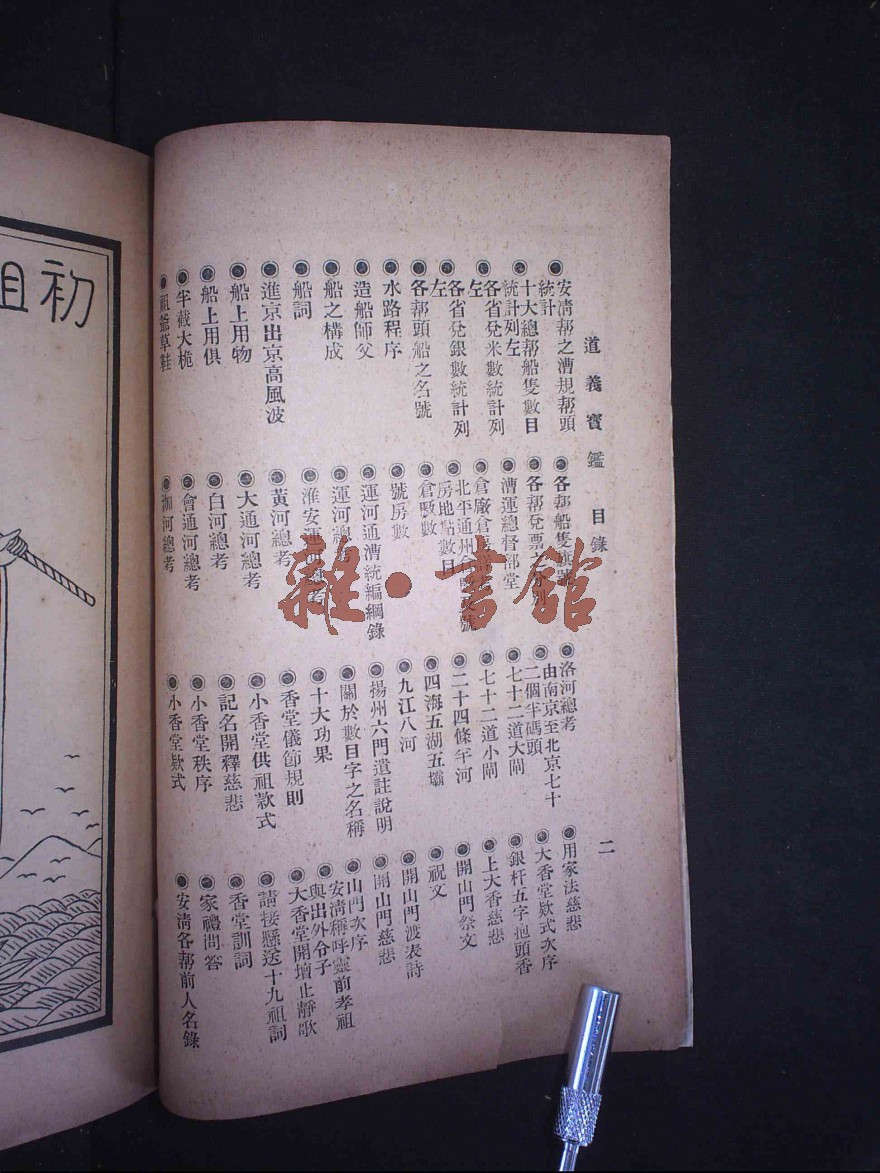 道義寶鑑 目錄
二
安淸帮之漕規帮頭
統計
十大總帮船隻數目
統計列左
各省兌米數統計列
左
各省兌銀數統計列
左
各帮頭船之名號
水路程序
造船師父
船之構成
船詞
進京出京高風波
船上用物
船上用俱
半截大桅
祖爺草鞋
各帮船隻旗號
各帮兌票之分別
漕運總督部堂
倉廠倉
北平通州倉
房地點數目
倉廒數
號房數
運河通漕統編綱錄
運河總考
淮安運河總考
黃河總考
大通河總考
白河總考
會通河總考
泇河總考
洛河總考
由南京至北京七十
二個半碼頭
七十二道大閘
七十二道小閘
二十四條半河
四海五湖五壩
九江八河
揚州六門遺註說明
關於數目字之名稱
十大功果
香堂儀節規則
小香堂供祖款式
記名開釋慈悲
小香堂秩序
小香堂欵式
用家法慈悲
大香堂欵式次序
銀杆五字抱頭香
上大香慈悲
開山門祭文
祝文
開山門渡表詩
開山門慈悲
山門次序
安淸稱呼靈前孝祖
與出外分子
大香堂開壇止靜歌
請接懸送十九祖詞
香堂訓詞
家禮問答
安淸各帮前人名錄
初祖
雜·書館